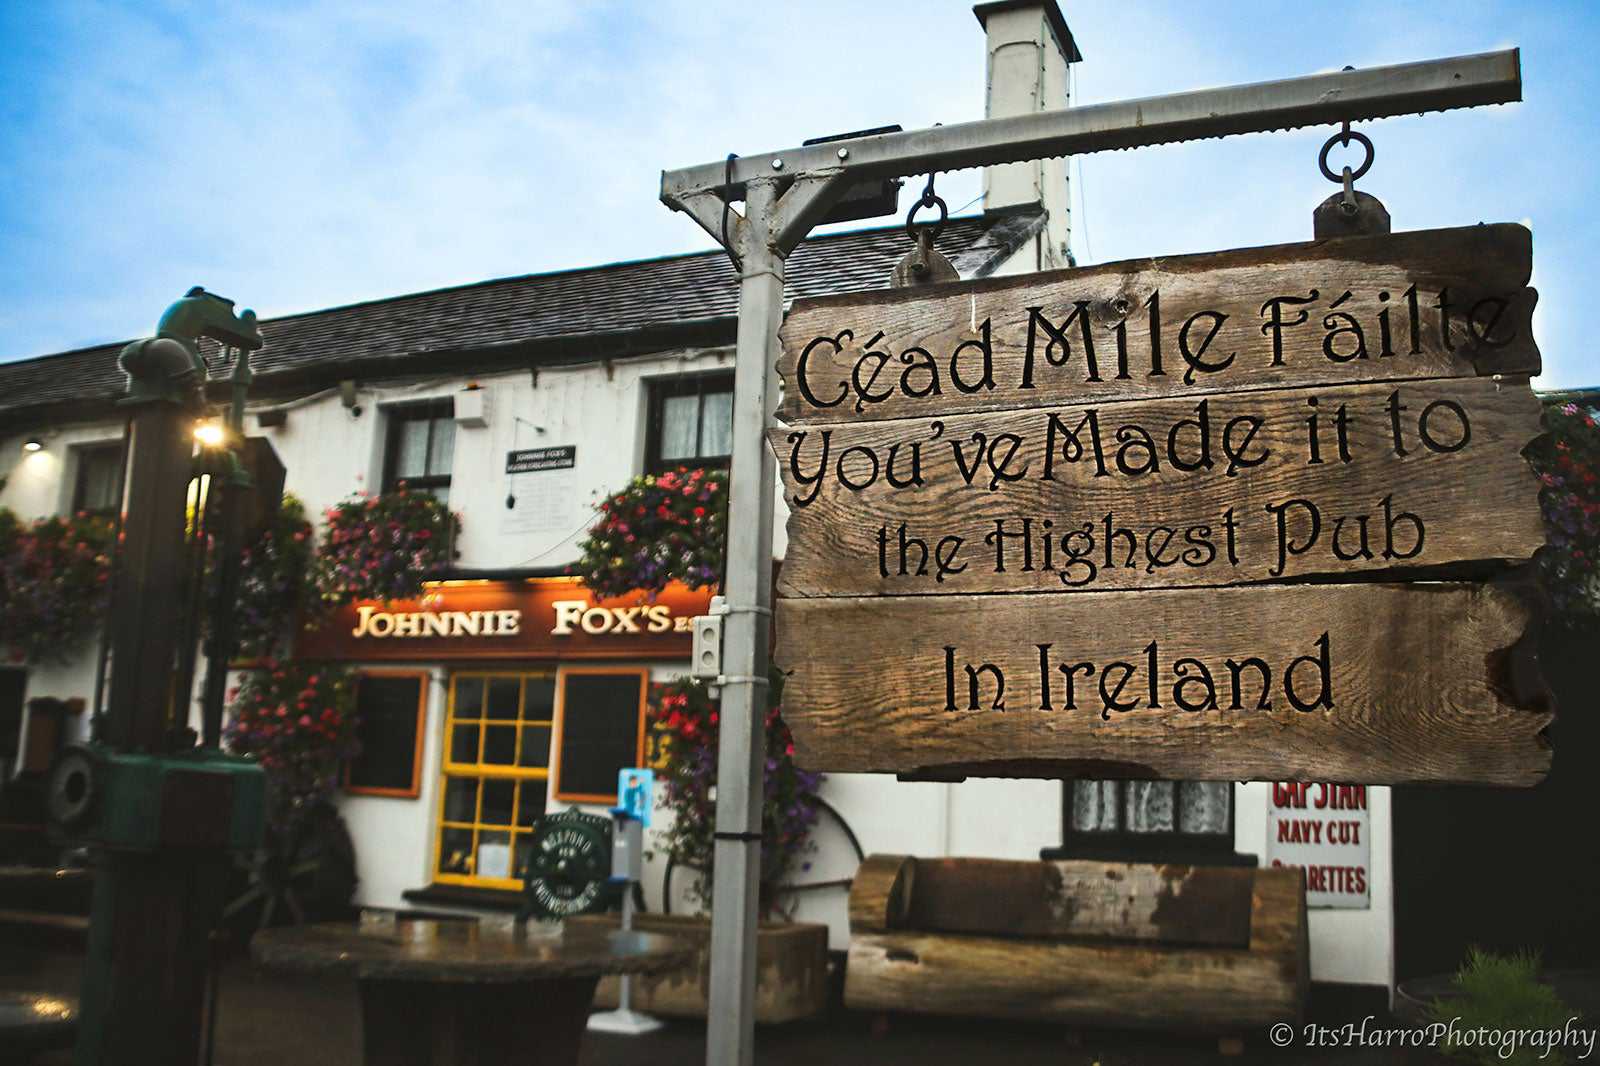 Céad Míle Fáilte
You've Made it to
the Highest Pub
In Ireland
JOHNNIE FOX'S
JOHNNIE FOX'S
CAPSTAN
NAVY CUT
CIGARETTES
© ItsHarroPhotography